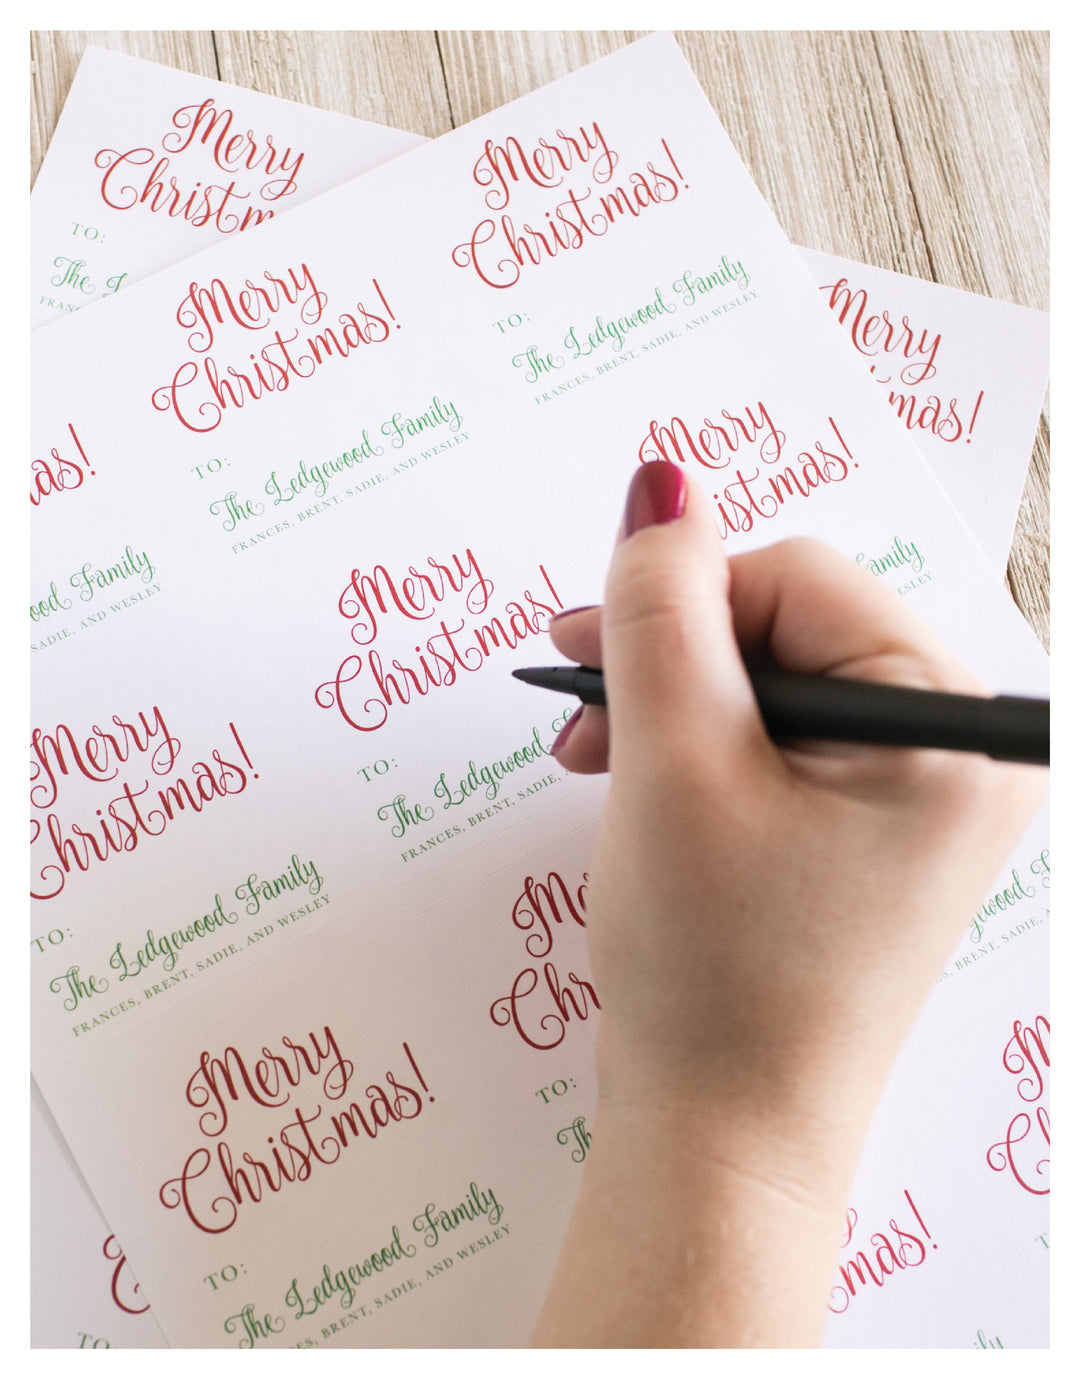 Merry
Christm
TO:
The
FRAN
Merry
Christmas!
TO:
The Ledgewood Family
FRANCES, BRENT, SADIE, AND WESLEY
Merry
Christmas!
TO:
The Ledgewood Family
FRANCES, BRENT, SADIE, AND WESLEY
Merry
mas!
as!
ood Family
SADIE, AND WESLEY
Merry
istmas!
amily
ESLEY
Merry
Christmas!
TO:
The Ledgewood
FRANCES, BRENT, SADIE, A
Merry
Christmas!
TO:
The Ledgewood Family
FRANCES, BRENT, SADIE, AND WESLEY
Me
Chr
TO:
Th
gewood
BRENT, SADIE,
Merry
Christmas!
TO:
The Ledgewood Family
ES, BRENT, SADIE, AND WESLEY
M
C
T
mas!
ily
C
TO: